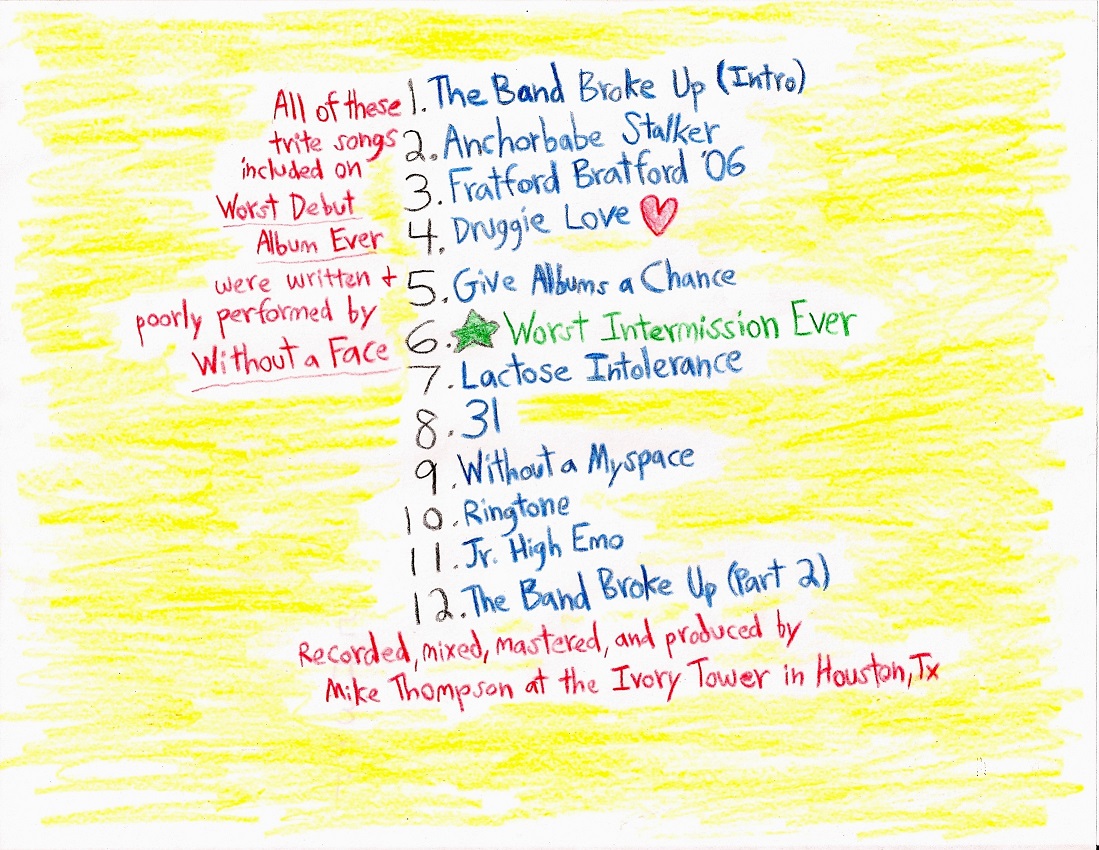 All of these
trite songs
included on
Worst Debut
Album Ever
were written +
poorly performed by
Without a Face
1. The Band Broke Up (Intro)
2. Anchorbabe Stalker
3. Fratford Bratford '06
4. Druggie Love
5. Give Albums a Chance
6. Worst Intermission Ever
7. Lactose Intolerance
8. 31
9. Without a Myspace
10. Ringtone
11. Jr. High Emo
12. The Band Broke Up (Part 2)
Recorded, mixed, mastered, and produced by
Mike Thompson at the Ivory Tower in Houston, Tx